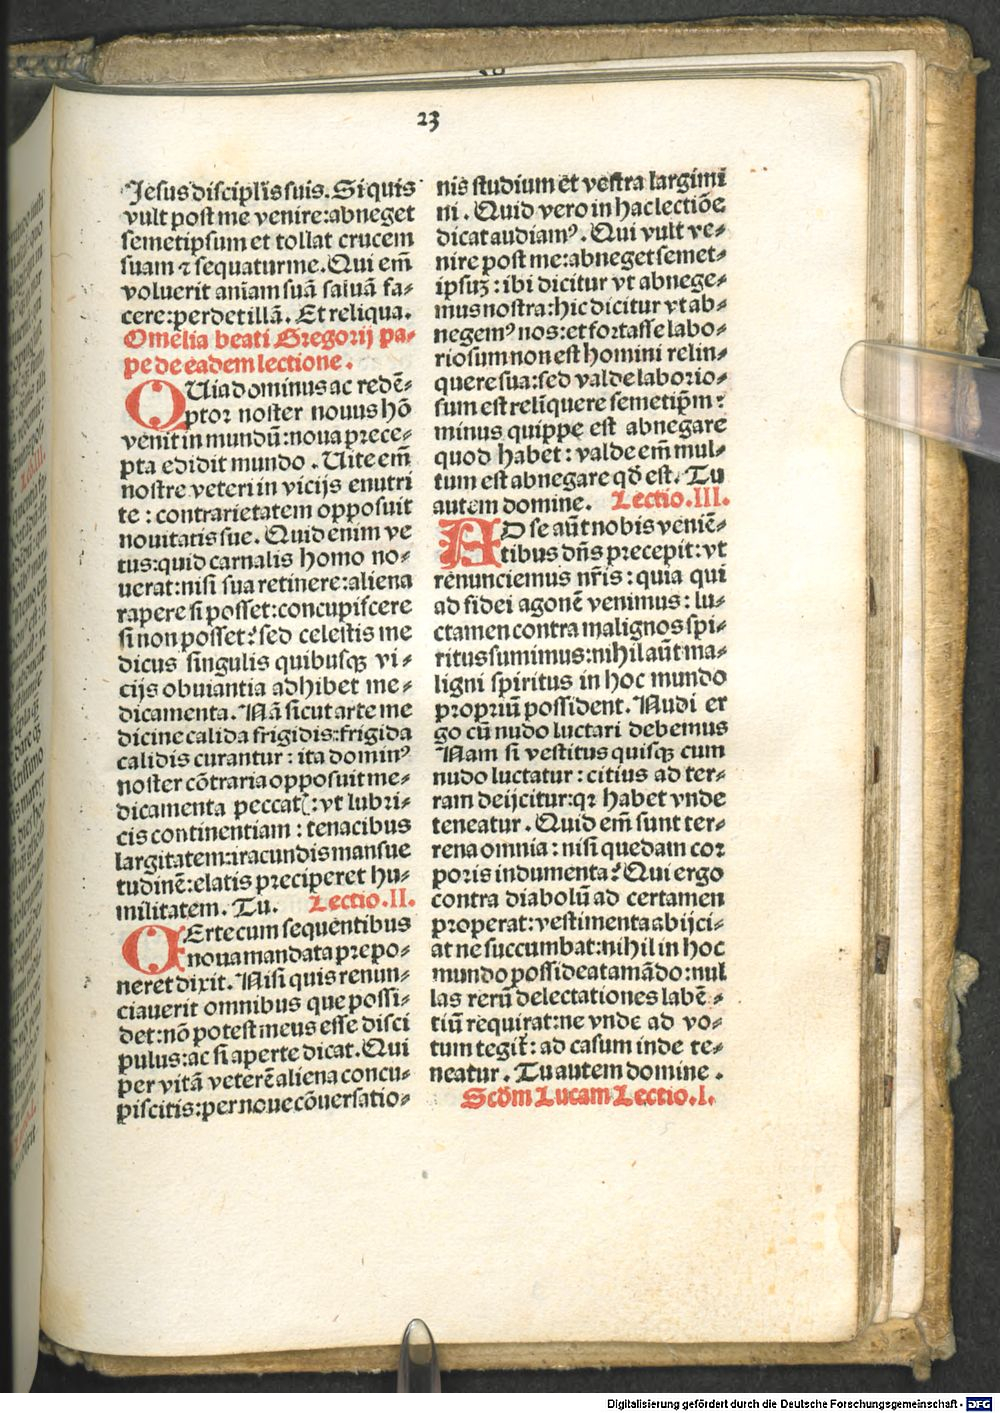 23
Jesus discipl'is suis. Si quis
vult post me venire:abneget
semetipsum et tollat crucem
suam ⁊ sequatur me. Qui em̄
voluerit aniam suā saluā fa⸗
cere:perdet illā. Et reliqua.
Omelia beati Gregorij pa⸗
pe de eadem lectione.
QUia dominus ac redē⸗
ptor noster nouus hō
venit in mundū:noua prece⸗
pta edidit mundo. Uite em̄
nostre veteri in vicijs enutri
te: contrarietatem opposuit
nouitatis sue. Quid enim ve
tus:quid carnalis homo no⸗
uerat:nisi sua retinere:aliena
rapere si posset:concupiscere
si non posset? sed celestis me
dicus singulis quibusqꝫ vi⸗
cijs obuiantia adhibet me⸗
dicamenta. Nā sicut arte me
dicine calida frigidis:frigida
calidis curantur: ita dominꝰ
noster cōtraria opposuit me⸗
dicamenta peccat(: vt lubri⸗
cis continentiam: tenacibus
largitatem:iracundis mansue
tudinē:elatis preciperet hu⸗
militatem. Tu. Lectio.II.
CErte cum sequentibus
noua mandata prepo⸗
neret dixit. Nisi quis renun⸗
ciauerit omnibus que possi⸗
det:nō potest meus esse disci
pulus:ac si aperte dicat. Qui
per vitā veterē aliena concu⸗
piscitis:per noue cōuersatio⸗
nis studium et vestra largimi
ni. Quid vero in hac lectiōe
dicat audiamꝰ. Qui vult ve⸗
nire post me:abneget semet⸗
ipsuꝫ: ibi dicitur vt abnege⸗
mus nostra:hic dicitur vt ab⸗
negemꝰ nos:et fortasse labo⸗
riosum non est homini relin⸗
quere sua:sed valde laborio⸗
sum est relīquere semetip̄m:
minus quippe est abnegare
quod habet: valde em̄ mul⸗
tum est abnegare qd̄ est. Tu
autem domine. Lectio.III.
AD se aūt nobis veniē⸗
tibus dn̄s precepit:vt
renunciemus nr̄is: quia qui
ad fidei agonē venimus: lu⸗
ctamen contra malignos spi⸗
ritus sumimus:nihil aūt ma⸗
ligni spiritus in hoc mundo
propriū possident. Nudi er
go cū nudo luctari debemus
Nam si vestitus quisqꝫ cum
nudo luctatur: citius ad ter⸗
ram deijcitur:qꝛ habet vnde
teneatur. Quid em̄ sunt ter⸗
rena omnia: nisi quedam cor
poris indumenta? Qui ergo
contra diabolū ad certamen
properat:vestimenta abijci⸗
at ne succumbat:nihil in hoc
mundo possideat amādo:nul
las rerū delectationes labē⸗
tiū requirat:ne vnde ad vo⸗
tum tegit̄: ad casum inde te⸗
neatur. Tu autem domine.
Scd̄m Lucam Lectio.I.
Digitalisierung gefördert durch die Deutsche Forschungsgemeinschaft - DFG